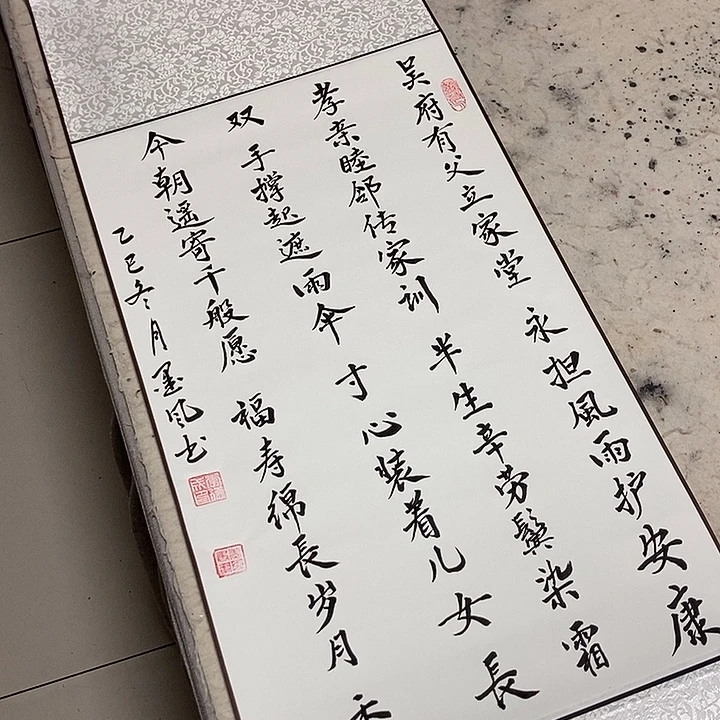 吴府有父立家堂 永担風雨护安康
孝亲睦邻传家训 半生辛劳鬓染霜
双手撑起遮雨伞 寸心装着儿女長
今朝遥寄千般愿 福寿绵長岁月
乙巳冬月墨风书